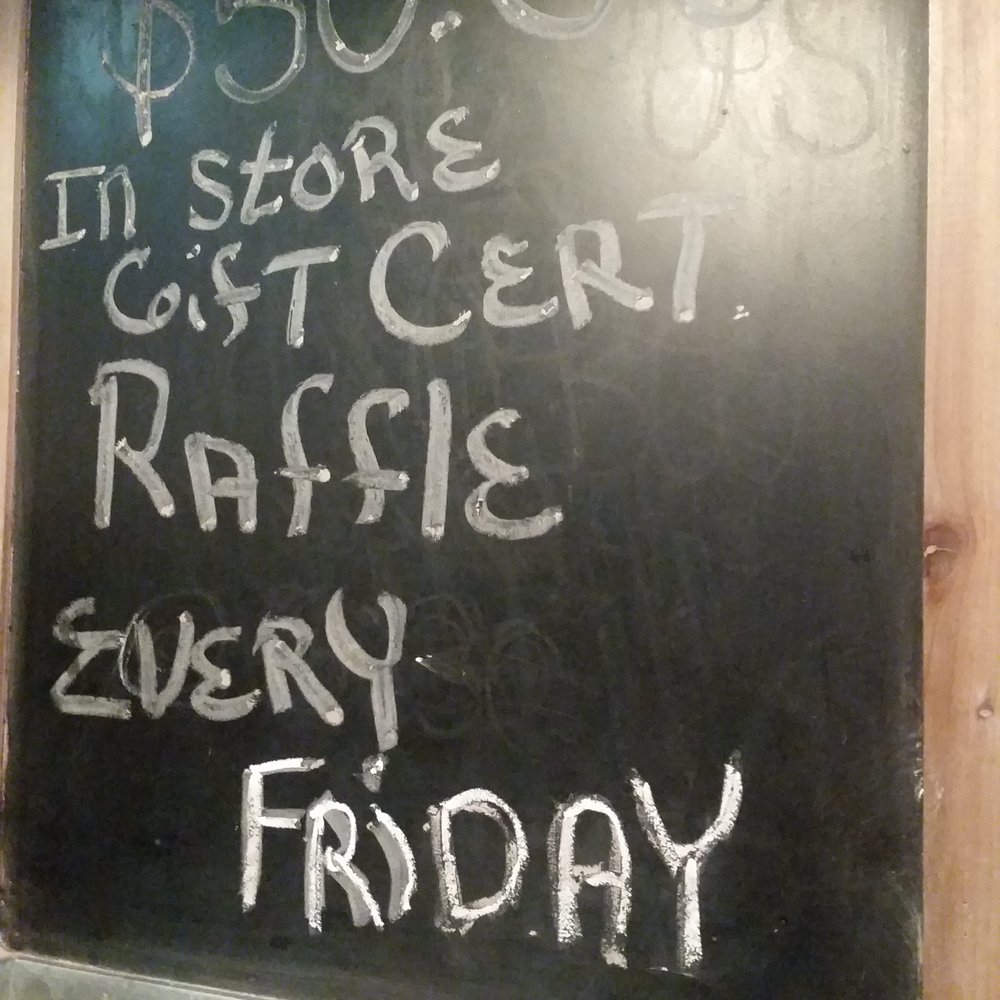 In STORE
GifT CERT.
RAfflE
EVERY
FRiDAY